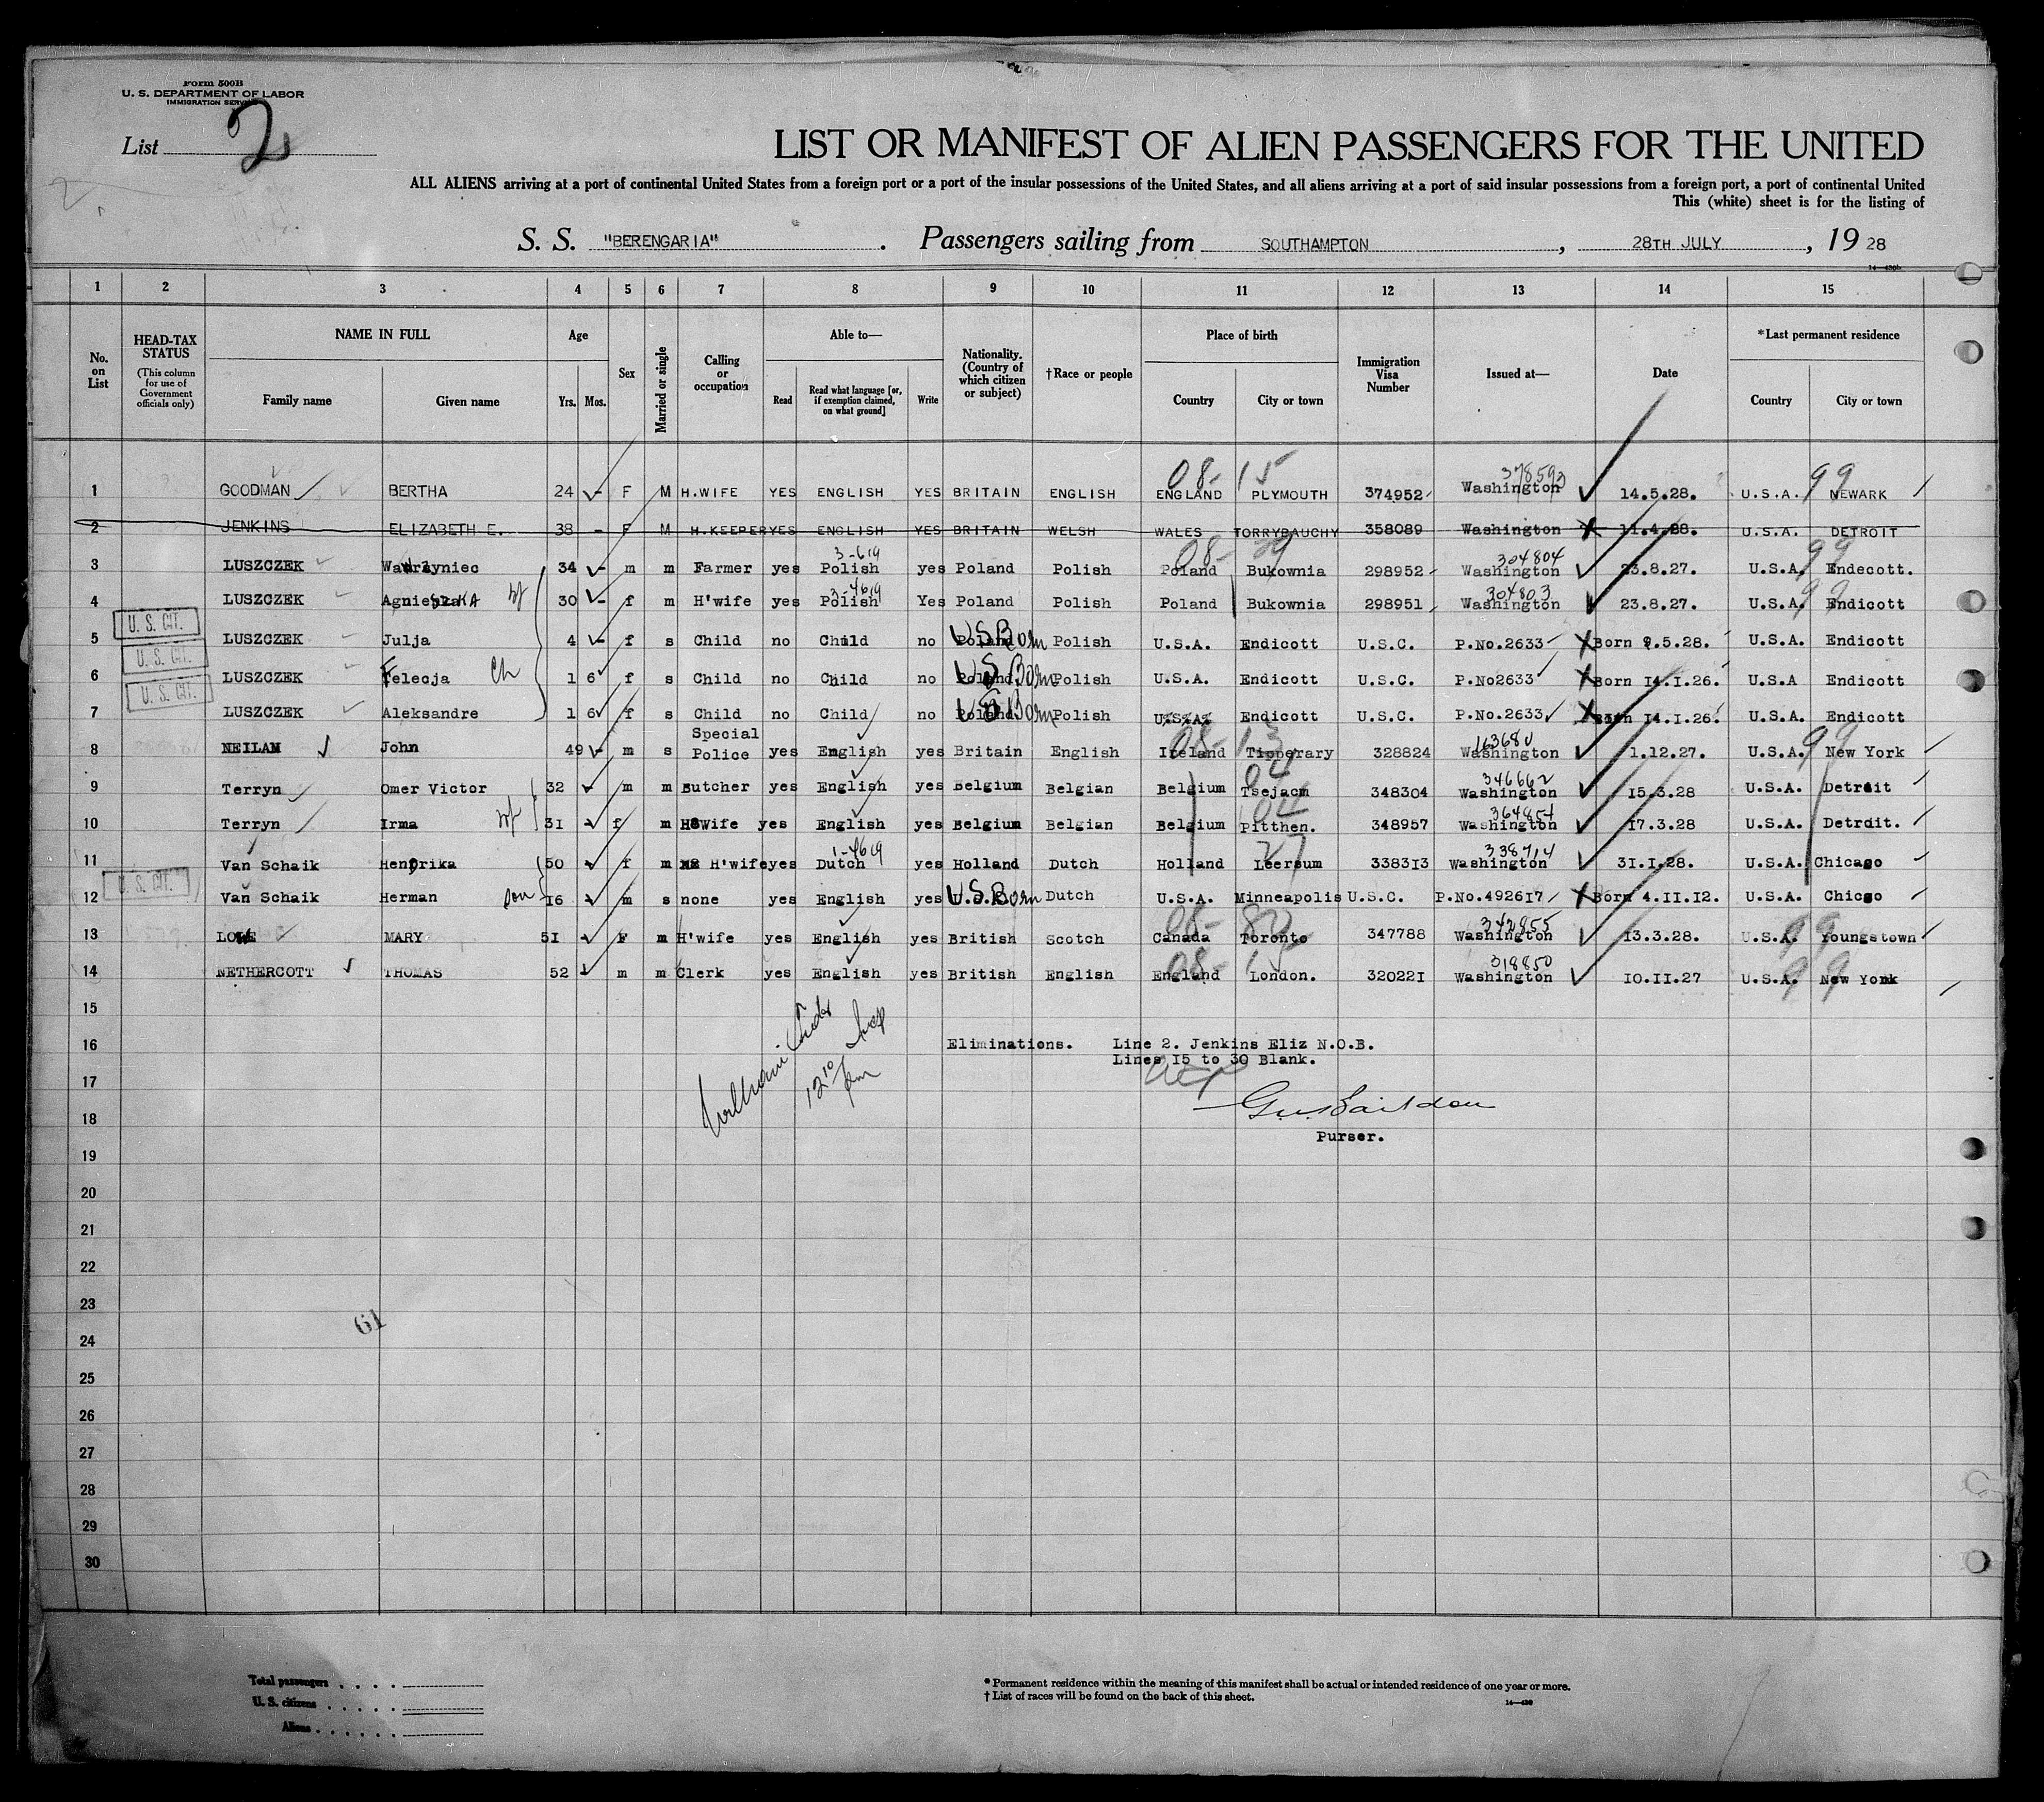 Form 500B
U. S. DEPARTMENT OF LABOR
IMMIGRATION SERVICE
List 2
LIST OR MANIFEST OF ALIEN PASSENGERS FOR THE UNITED
ALL ALIENS arriving at a port of continental United States from a foreign port or a port of the insular possessions of the United States, and all aliens arriving at a port of said insular possessions from a foreign port, a port of continental United
This (white) sheet is for the listing of
S. S. "BERENGARIA" . Passengers sailing from SOUTHAMPTON , 28TH JULY , 19 28
1 2 3 4 5 6 7 8 9 10 11 12 13 14 15
No. on List HEAD-TAX STATUS (This column for use of Government officials only) NAME IN FULL Family name Given name Age Yrs. Mos. Sex Married or single Calling or occupation Able to— Read Read what language [or, if exemption claimed, on what ground] Write Nationality. (Country of which citizen or subject) †Race or people Place of birth Country City or town Immigration Visa Number Issued at— Date *Last permanent residence Country City or town
08- 15 378592 99
1 GOODMAN BERTHA 24 - F M H.WIFE YES ENGLISH YES BRITAIN ENGLISH ENGLAND PLYMOUTH 374952 Washington 14.5.28. U.S.A. NEWARK
2 JENKINS ELIZABETH E. 38 - F M H.KEEPER YES ENGLISH YES BRITAIN WELSH WALES TORRYBAUCHY 358089 Washington 11.4.28. U.S.A. DETROIT
3-619 08- 304804 99
3 LUSZCZEK Wawrzyniec 34 - m m Farmer yes Polish yes Poland Polish Poland Bukownia 298952 Washington 23.8.27. U.S.A. Endecott.
3-4619 304803 99
4 LUSZCZEK Agnieszka wf 30 - f m H'wife yes Polish Yes Poland Polish Poland Bukownia 298951 Washington 23.8.27. U.S.A. Endicott
U. S. CIT.
5 LUSZCZEK Julja 4 - f s Child no Child no Poland US Born Polish U.S.A. Endicott U.S.C. P.No.2633 Born 9.5.28. U.S.A. Endicott
U. S. CIT.
6 LUSZCZEK Felecja Ch 1 6 f s Child no Child no Poland US Born Polish U.S.A. Endicott U.S.C. P.No2633 Born 14.1.26. U.S.A Endicott
U. S. CIT.
7 LUSZCZEK Aleksandre 1 6 f s Child no Child no Poland US Born Polish U.S.A. Endicott U.S.C. P.No.2633 Born 14.1.26. U.S.A. Endicott
08- 13 163680 99
8 NEILAN John 49 - m s Special Police yes English yes Britain English Ireland Tipperary 328824 Washington 1.12.27. U.S.A. New York
04 346662
9 Terryn Omer Victor 32 - m m Butcher yes English yes Belgium Belgian Belgium Tsejacm 348304 Washington 15.3.28 U.S.A. Detroit
04 364854
10 Terryn Irma wf 31 - f m H'wife yes English yes Belgium Belgian Belgium Pitthen. 348957 Washington 17.3.28 U.S.A. Detroit.
1-4619 27 338714
11 Van Schaik Hendrika 50 - f m H'wife yes Dutch yes Holland Dutch Holland Leersum 338313 Washington 31.1.28. U.S.A. Chicago
U. S. CIT.
12 Van Schaik Herman son 16 - m s none yes English yes U.S.Born Dutch U.S.A. Minneapolis U.S.C. P.No.492617 Born 4.11.12. U.S.A. Chicgo
08- 82 342855 99
13 LOWE MARY 51 - F m H'wife yes English yes British Scotch Canada Toronto 347788 Washington 13.3.28. U.S.A. Youngstown
08- 15 318850 99
14 NETHERCOTT THOMAS 52 - m m Clerk yes English yes British English England London. 320221 Washington 10.11.27 U.S.A. New York
15
16 Eliminations. Line 2. Jenkins Eliz N.O.B.
Lines 15 to 30 Blank.
17
18
Purser.
1210 pm
19
20
21
22
23
61
24
25
26
27
28
29
30
Total passengers
U. S. citizens
Aliens
*Permanent residence within the meaning of this manifest shall be actual or intended residence of one year or more.
†List of races will be found on the back of this sheet.